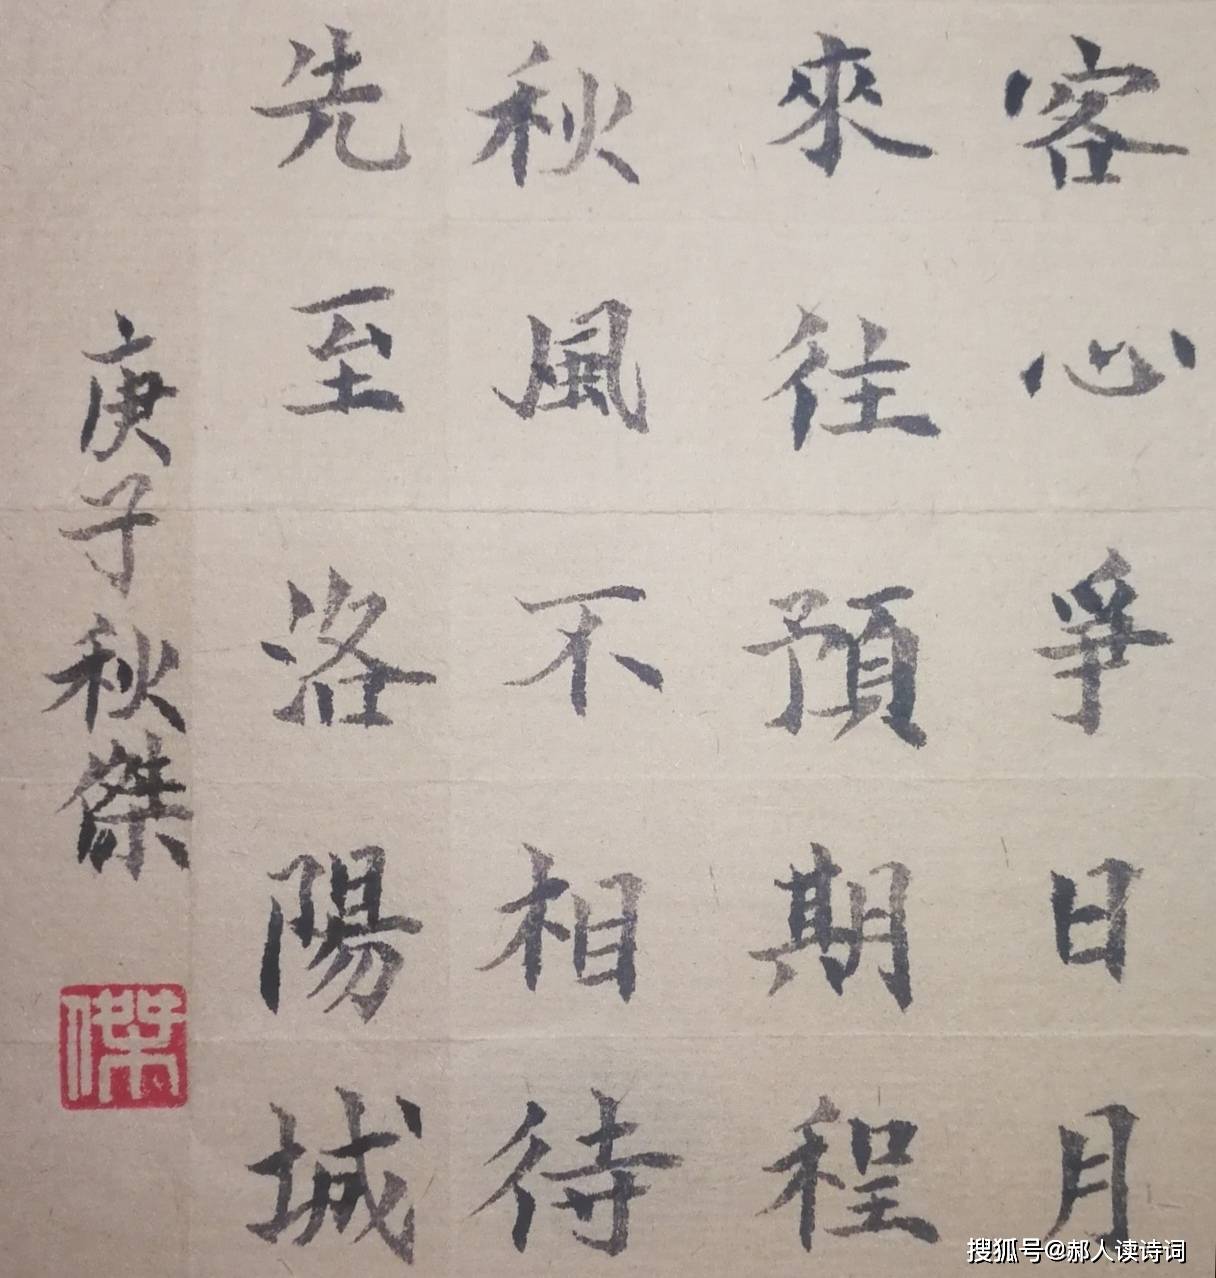 客心爭日月
來往預期程
秋風不相待
先至洛陽城
庚子秋傑
傑
搜狐号@郝人读诗词